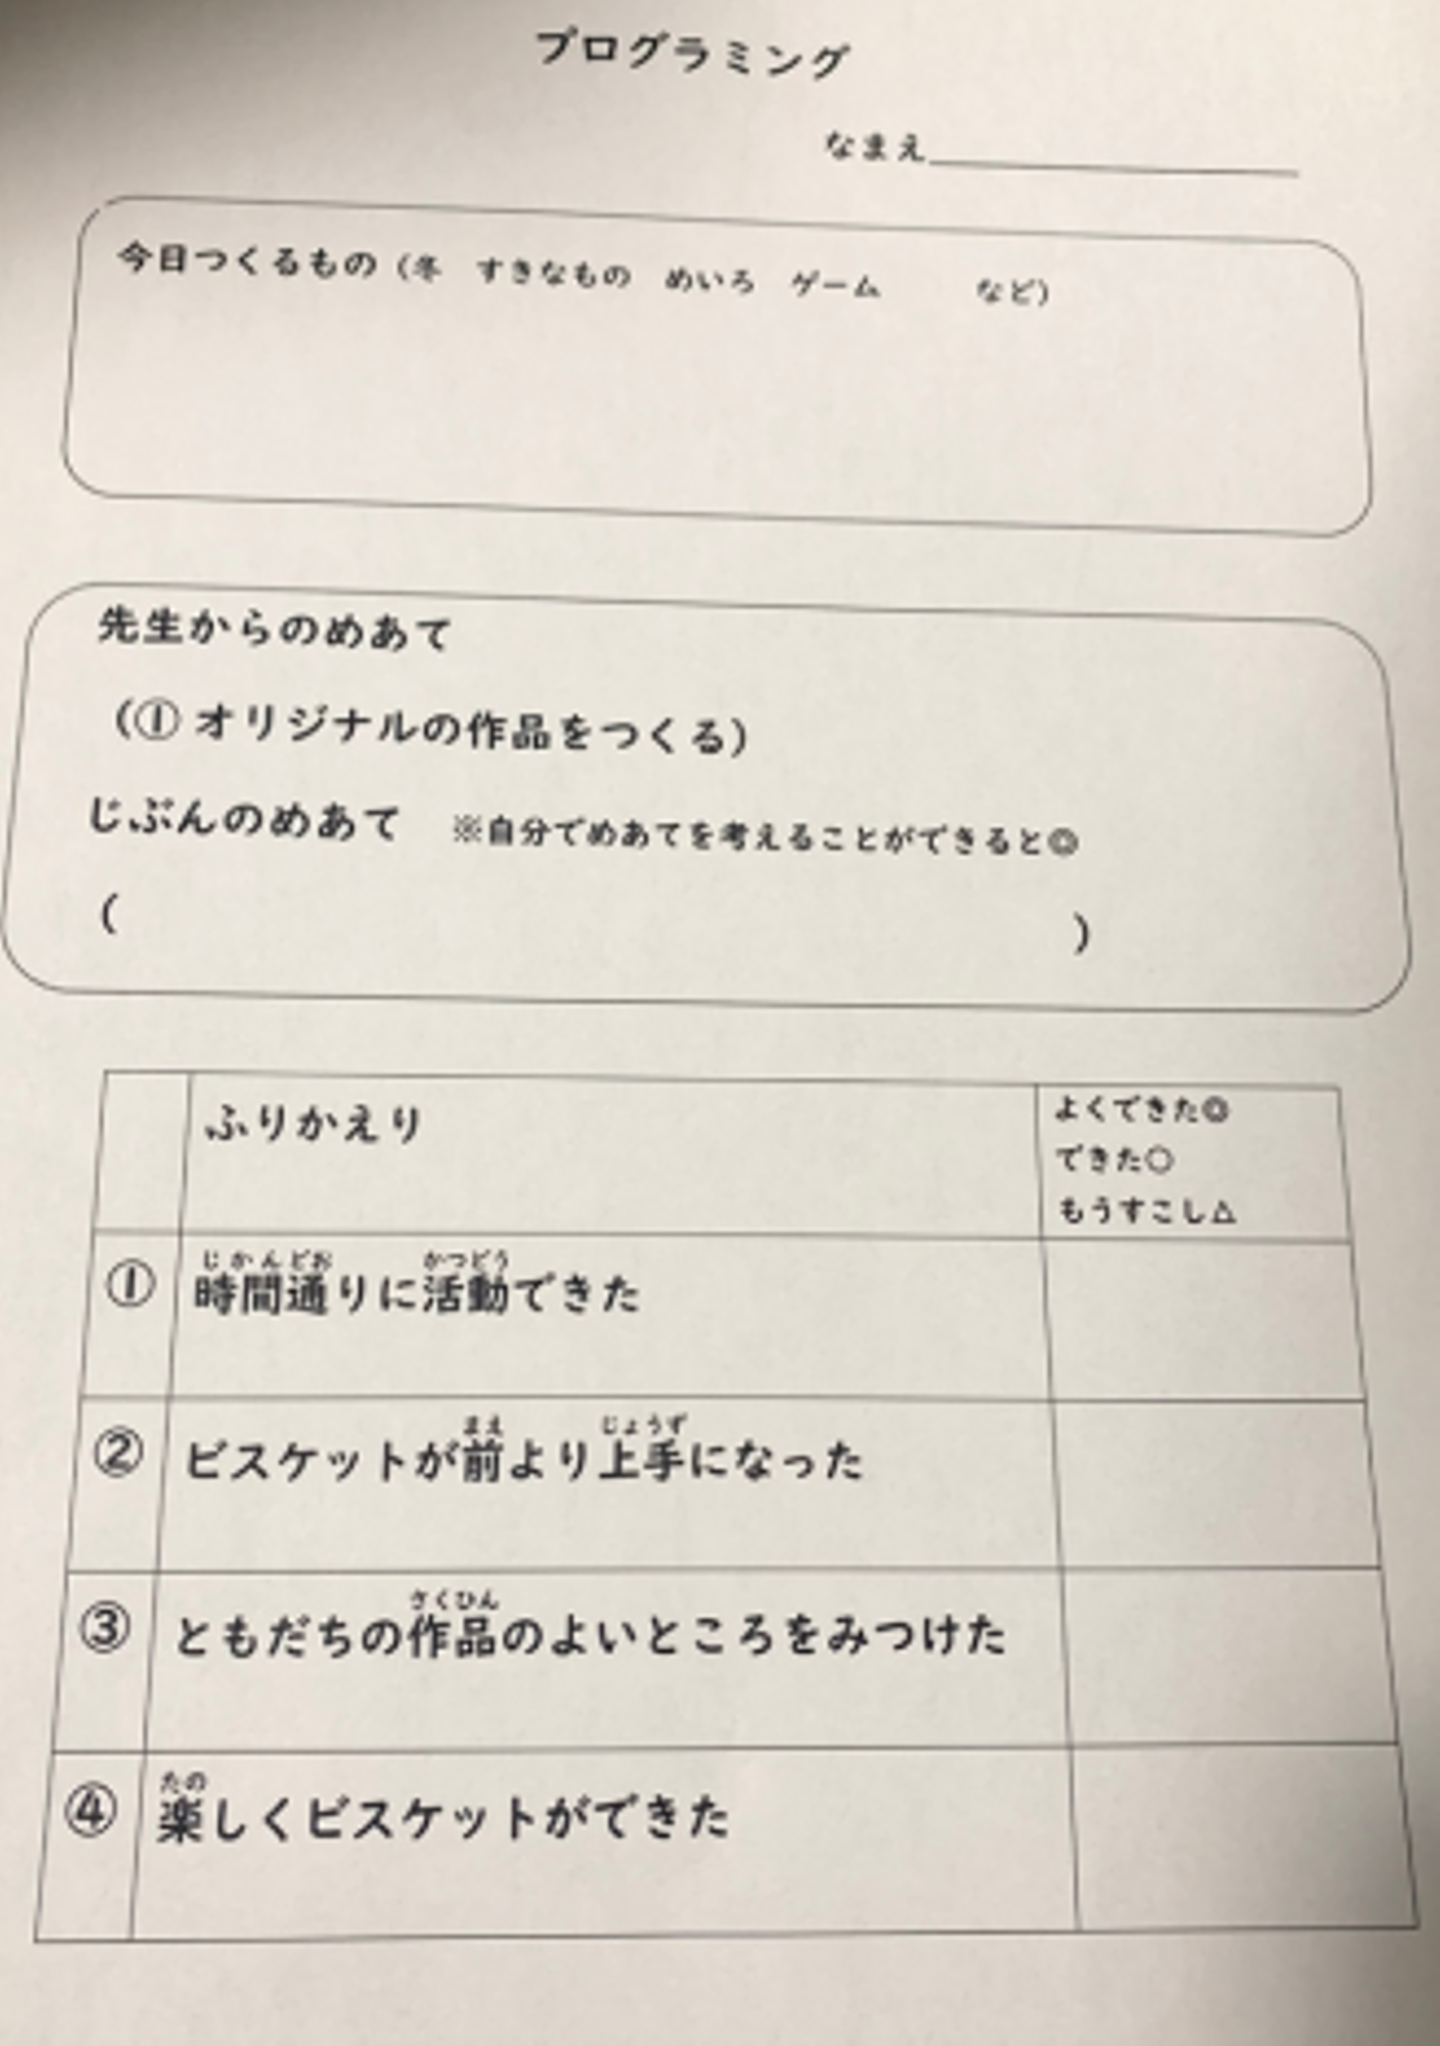 プログラミング
なまえ
今日つくるもの（冬　すきなもの　めいろ　ゲーム　　　など）
先生からのめあて
（① オリジナルの作品をつくる）
じぶんのめあて　※自分でめあてを考えることができると◎
（　　　　　　　　　　　　　　　　　　　　　）
ふりかえり
よくできた◎
できた○
もうすこし△
じかんどお　かつどう
① 時間通りに活動できた
まえ　じょうず
② ビスケットが前より上手になった
さくひん
③ ともだちの作品のよいところをみつけた
たの
④ 楽しくビスケットができた